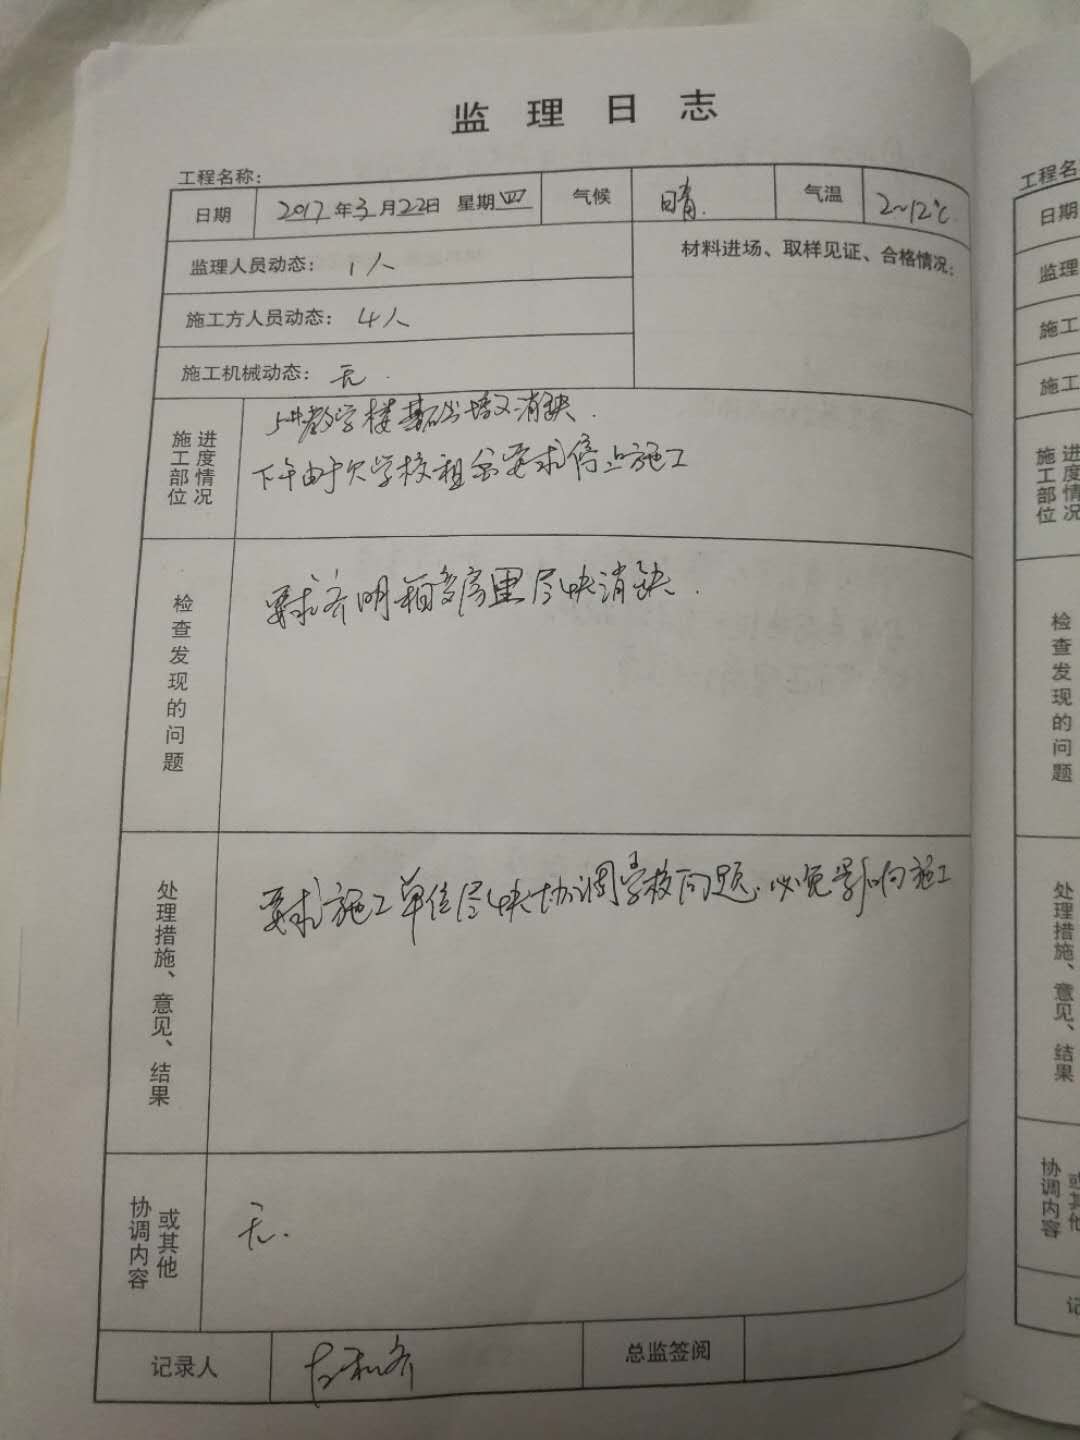 监理日志
工程名称：
日期 2017年3月22日 星期四 气候 晴. 气温 2~12℃
监理人员动态： 1人
材料进场、取样见证、合格情况：
施工方人员动态： 4人
施工机械动态： 无.
施工部位 进度情况
教学楼基础 消缺.
下午由于欠学校租金要求停止施工
检查发现的问题
要求 明 房 尽快消缺.
处理措施、意见、结果
要求施工单位尽快协调学校问题.必免影响施工
协调内容 或其他
无.
记录人
总监签阅
工程名
日期
监理
施工
施工
施工部位 进度情况
检查发现的问题
处理措施、意见、结果
协调内容 或其他
记